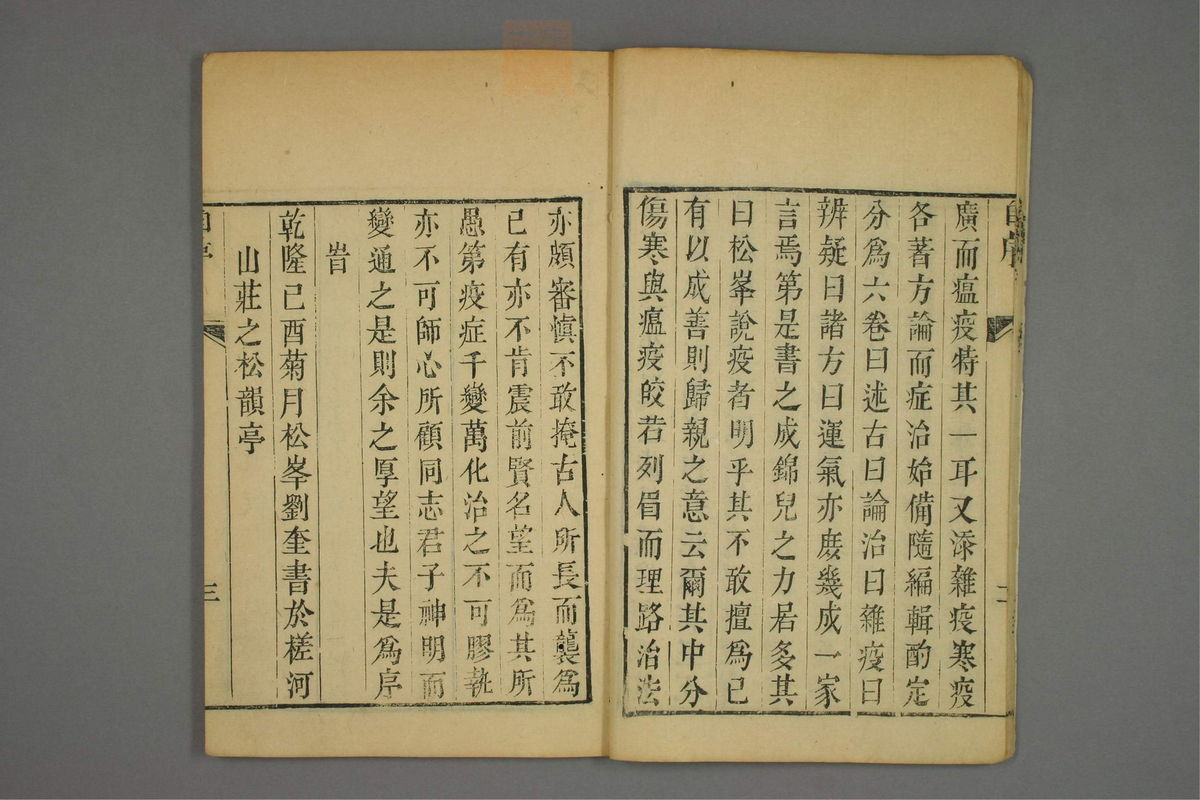 自序
廣而瘟疫特其一耳又添雜疫寒疫
各著方論而症治始備隨編輯酌定
分爲六卷曰述古曰論治曰雜疫曰
辨疑曰諸方曰運氣亦庶幾成一家
言焉第是書之成錦兒之力居多其
曰松峯說疫者明乎其不敢擅爲已
有以成善則歸親之意云爾其中分
傷寒與瘟疫皎若列眉而理路治法
亦頗審愼不敢掩古人所長而襲爲
已有亦不肯震前賢名望而爲其所
愚第疫症千變萬化治之不可膠執
亦不可師心所顧同志君子神明而
變通之是則余之厚望也夫是爲序
旹
乾隆己酉菊月松峯劉奎書於槎河
山莊之松韻亭
三